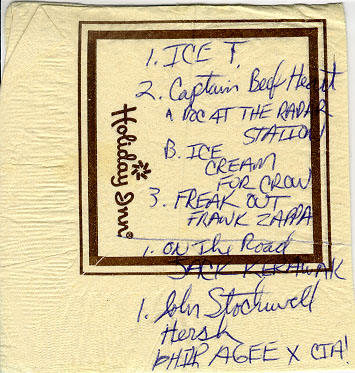 1. ICE T.
2. Captain Beef Heart
A DOC AT THE RADAR
STATION
B. ICE
CREAM
FOR CROW
3. FREAK OUT
FRANK ZAPPA
1. ON The Road
JACK KERAWAK
1. John Stockwell
Hersh
PHIL AGEE X CIA!
Holiday Inn®